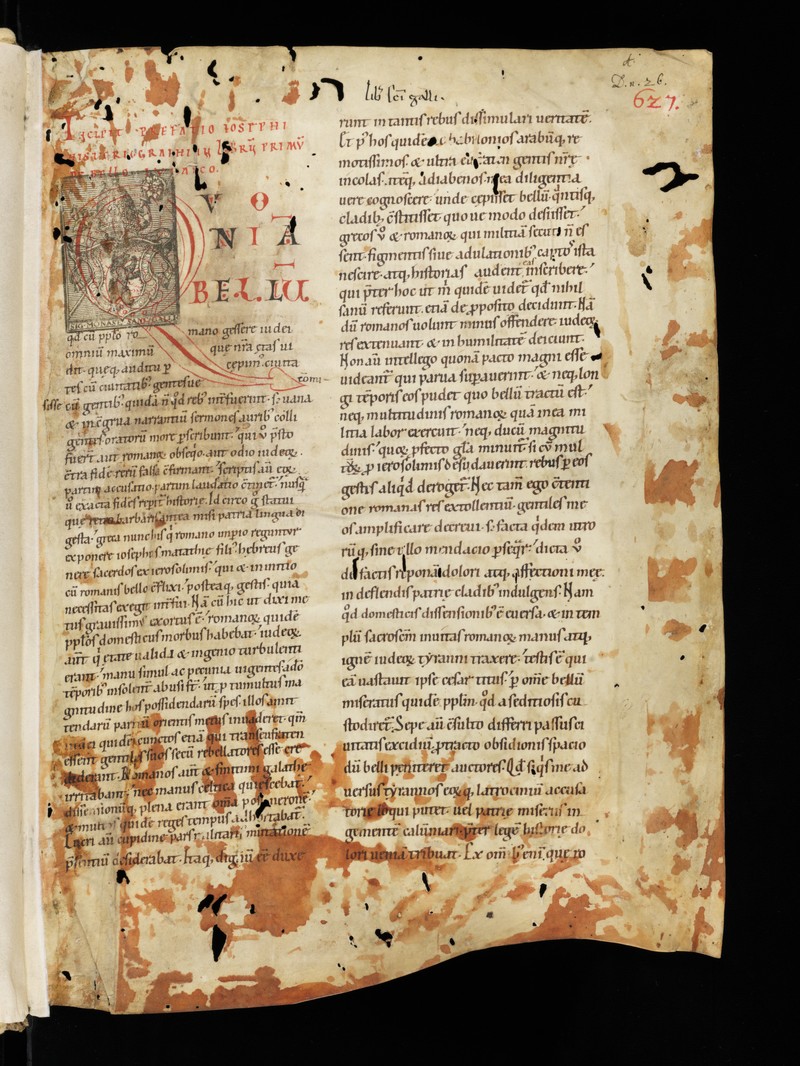 lib sci galli.
D. n. 26.
627.
INCIPIT PREFATIO IOSEPHI
HISTORIOGRAPHI IN LIBRU PRIMV
DE BELLO IUDAICO.
QVO
NIA
BELLU
qd cu pplo ro mano gessere iudei
omniu maximu que nra etas ui
dit. queq, auditu p cepim' ciuita
tes cu ciuitatib' gentesue comi
sisse cu gentib' quida n qd reb' intfuerint. s; uana
& incgrua narrantiu sermones aurib' colli
gentes oratoru more pscribunt. qui v psto
fuert aut romanoꝝ obseqo. aut odio iudeoꝝ.
ctra fide reru falsa cfirmant. scriptis au eoꝝ
partim accusatio partim laudatio ctinet. nusq
u exacta fides repit historie. Id circo q statui
que retro barbaris antea misi patria lingua di
gesta. greca nunc his q romano impio reguntur
exponere iosephus matathie fili' hebreus ge
nere sacerdos ex ierosolimis. qui & in initio
cu romanis bello cflixi. posteaq, gestis. quia
necessitas exegit intfui. Na cu hic ut dixi mo
tus grauissim' exortus e. romanoꝝ quide
pplos domesticus morbus habebat. iudeoꝝ
aut q etate ualida & ingenio turbulenti
erant. manu simul ac pecunia uigentes. adeo
teporib' insolent abusi st. ut p tumultus ma
gnitudine hos possidendaru spes. illos amit
tendaru partiu orientis metus inuaderet. qm
iudei quide cunctos etia qui trans eufraten
essent gentiles suos secu rebellatores esse cre
diderant. Romanos aut & finitimi galathe
irritabant. nec manus celtica quiescebat.
dissensionuq, plena erant oma p' nerone.
& multos quide reges tempus adhortabat.
Lucri au cupidine pars militaris mutatione
psentiu desiderabat. Itaq, dignu ee duxe
runt in tantis rebus dissimulari ueritate.
Et p' hos quide & babilonios arabuq, re
motissimos. & ultra eufraten gentis nre
incolas. iteq, adiabenos mea diligentia
uere cognoscere. unde cepisset bellu qntisq,
cladib, cstitisset. quo ue modo desiisset.
grecos v & romanoꝝ qui militia secuti n es
sent. figmentis siue adulationib' captos ista
nescire. atq, historias audent eas inscribere.
qui pter hoc ut m quide uidet qd nihil
sanu referunt. etia de pposito decidunt. Na
du romanos uolunt minus offendere. iudeoꝝ
res extenuant & in humilitate deiciunt.
Non au intellego quona pacto magni esse
uideant qui parua supauerint. & neq, lon
gi teporis eos pudet quo bellu tractu est.
neq, multitudinis romanoꝝ qua in ea mi
litia labor exercuit. neq, ducu magnitu
dinis. quoꝝ pfecto gla minuit. si cu mul
tu p ierosolimis desudauerint. rebus p eos
gestis aliqd deroget. Nec tam ego ctenti
one romanas res extollentiu. gentiles me
os amplificare decreui. s. facta qdem utro
ruq, sine ullo mendacio pseqr. dicta v
de factis reponam dolori atq, affectioni mee.
in deflendis patrie cladib' indulgens. Nam
qd domesticis dissensionib' e euersa. & in tem
plu sacrosem inuitas romanoꝝ manus atq,
igne iudeoꝝ tyranni traxere. testis e qui
ea uastauit ipse cesar titus. p ome bellu
miseratus quide pplm. qd a seditiosis cu
stodiret. Sepe au csulto differri passus ci
uitatis excidiu. ptracto obsidionis spacio
du belli peniteret auctores. Qd siqs me ad
versus tyrannos eoꝝ q, latrociniu accusa
torie loqui putet. uel patrie miseriis in
gemente caluniari. pter lege historie do
lori uenia tribuat. Ex omib' eni. que ro